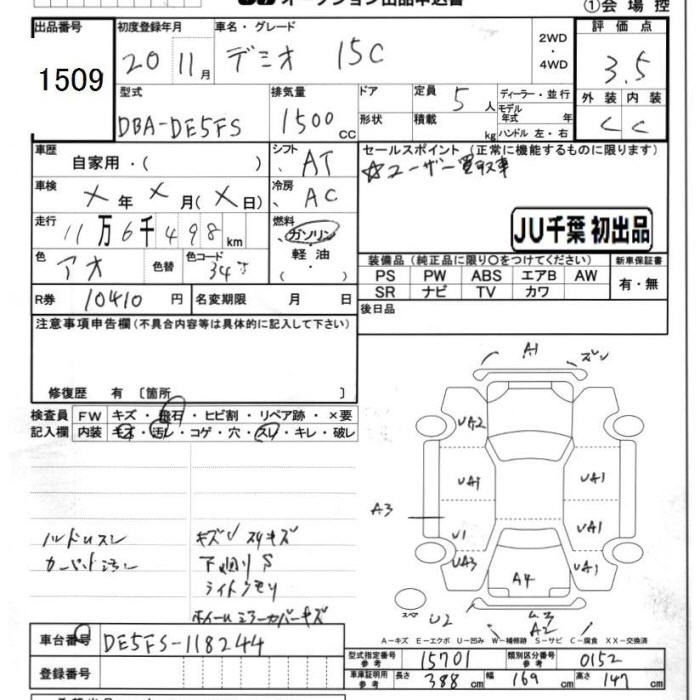 ①会場控
出品番号 1509
初度登録年月 20 11月
車名・グレード デミオ 15C
2WD・4WD
評価点 3.5
外装 C 内装 C
型式 DBA-DE5FS
排気量 1500cc
ドア 形状
定員 5人
積載 kg
ディーラー・並行
モデル年式 年
ハンドル 左・右
車歴 自家用・( )
シフト AT
車検 ×年×月(×日)
冷房 AC
走行 11万6千498km
燃料 ガソリン・軽油・
色 アオ 色替 色コード 34J
R券 10410円 名変期限 月 日
セールスポイント (正常に機能するものに限ります)
☆ユーザー買取車
JU千葉 初出品
装備品 (純正品に限り○をつけてください) 新車保証書
PS PW ABS エアB AW 有・無
SR ナビ TV カワ
後日品
注意事項申告欄(不具合内容等は具体的に記入して下さい)
修復歴 有 〔箇所 〕
検査員 FW キズ・飛石・ヒビ割・リペア跡・×要
記入欄 内装 キズ・汚レ・コゲ・穴・スレ・キレ・破レ
ハンドルスレ
カーペット汚レ
キズU スリキズ
下廻りS
ライトクモリ
ホイールミラーカバーキズ
A1 ズレ
UA2
UA1 UA1
A3
U1 UA1
UA3 A4 UA1
スペ U2 A2
A-キズ E-エクボ U-凹み W-補修跡 S-サビ C-腐食 XX-交換済
車台番号 DE5FS-118244
登録番号
型式指定番号 参考 15701 類別区分番号 参考 0152
車庫証明用 参考 長さ 388cm 幅 169cm 高さ 147cm